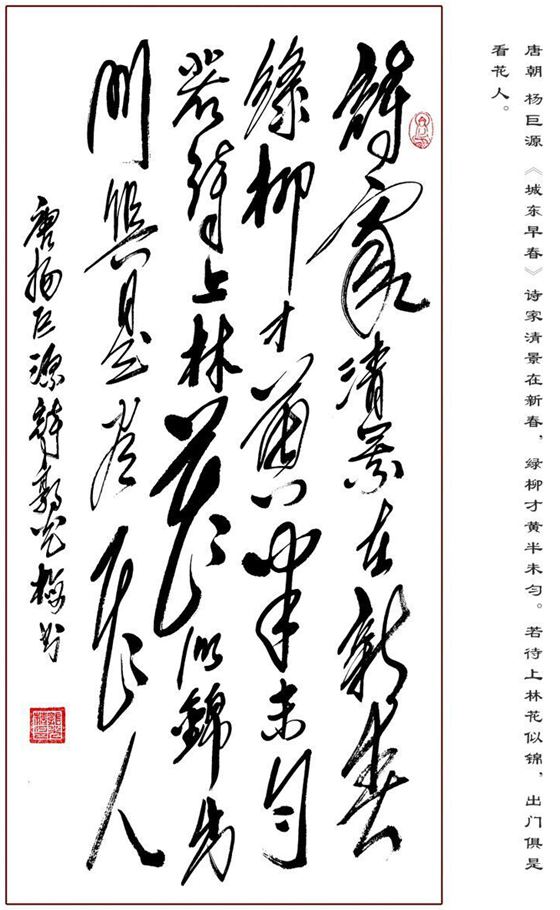 唐朝 杨巨源 《城东早春》诗家清景在新春，绿柳才黄半未匀。若待上林花似锦，出门俱是
看花人。
詩家清景在新春
綠柳才黃半未勻
若待上林花似錦出
門俱是看花人
唐杨巨源詩郭光梅书